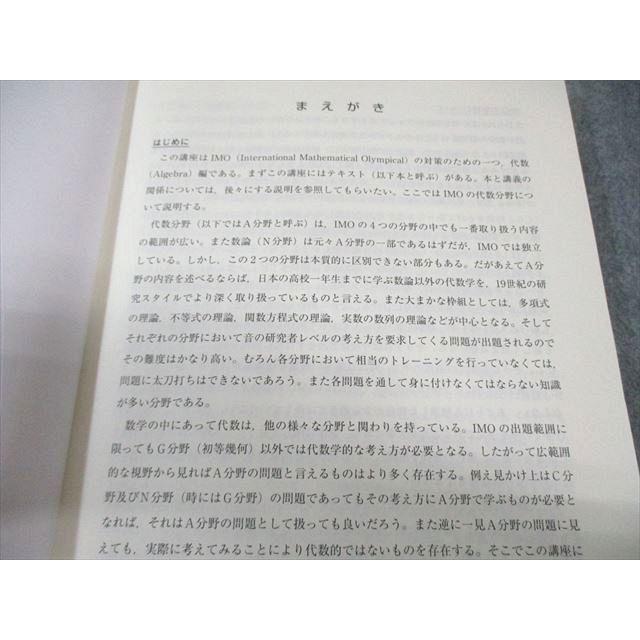 まえがき
はじめに
この講座はIMO（International Mathematical Olympical）の対策のための一つ，代数
（Algebra）編である。まずこの講座にはテキスト（以下本と呼ぶ）がある。本と講義の
関係については，後々にする説明を参照してもらいたい。ここではIMOの代数分野につ
いて説明する。
代数分野（以下ではA分野と呼ぶ）は，IMOの4つの分野の中でも一番取り扱う内容
の範囲が広い。また数論（N分野）は元々A分野の一部であるはずだが，IMOでは独立
している。しかし，この2つの分野は本質的に区別できない部分もある。だがあえてA分
野の内容を述べるならば，日本の高校一年生までに学ぶ数論以外の代数学を，19世紀の研
究スタイルでより深く取り扱っているものと言える。また大まかな枠組としては，多項式
の理論，不等式の理論，関数方程式の理論，実数の数列の理論などが中心となる。そして
それぞれの分野において音の研究者レベルの考え方を要求してくる問題が出題されるので
その難度はかなり高い。むろん各分野において相当のトレーニングを行っていなくては，
問題に太刀打ちはできないであろう。また各問題を通して身に付けなくてはならない知識
が多い分野である。
数学の中にあって代数は，他の様々な分野と関わりを持っている。IMOの出題範囲に
限ってもG分野（初等幾何）以外では代数学的な考え方が必要となる。したがって広範囲
的な視野から見ればA分野の問題と言えるものはより多く存在する。例え見かけ上はC分
野及びN分野（時にはG分野）の問題であってもその考え方にA分野で学ぶものが必要と
なれば，それはA分野の問題として扱っても良いだろう。また逆に一見A分野の問題に見
えても，実際に考えてみることにより代数的ではないものを存在する。そこでこの講座に